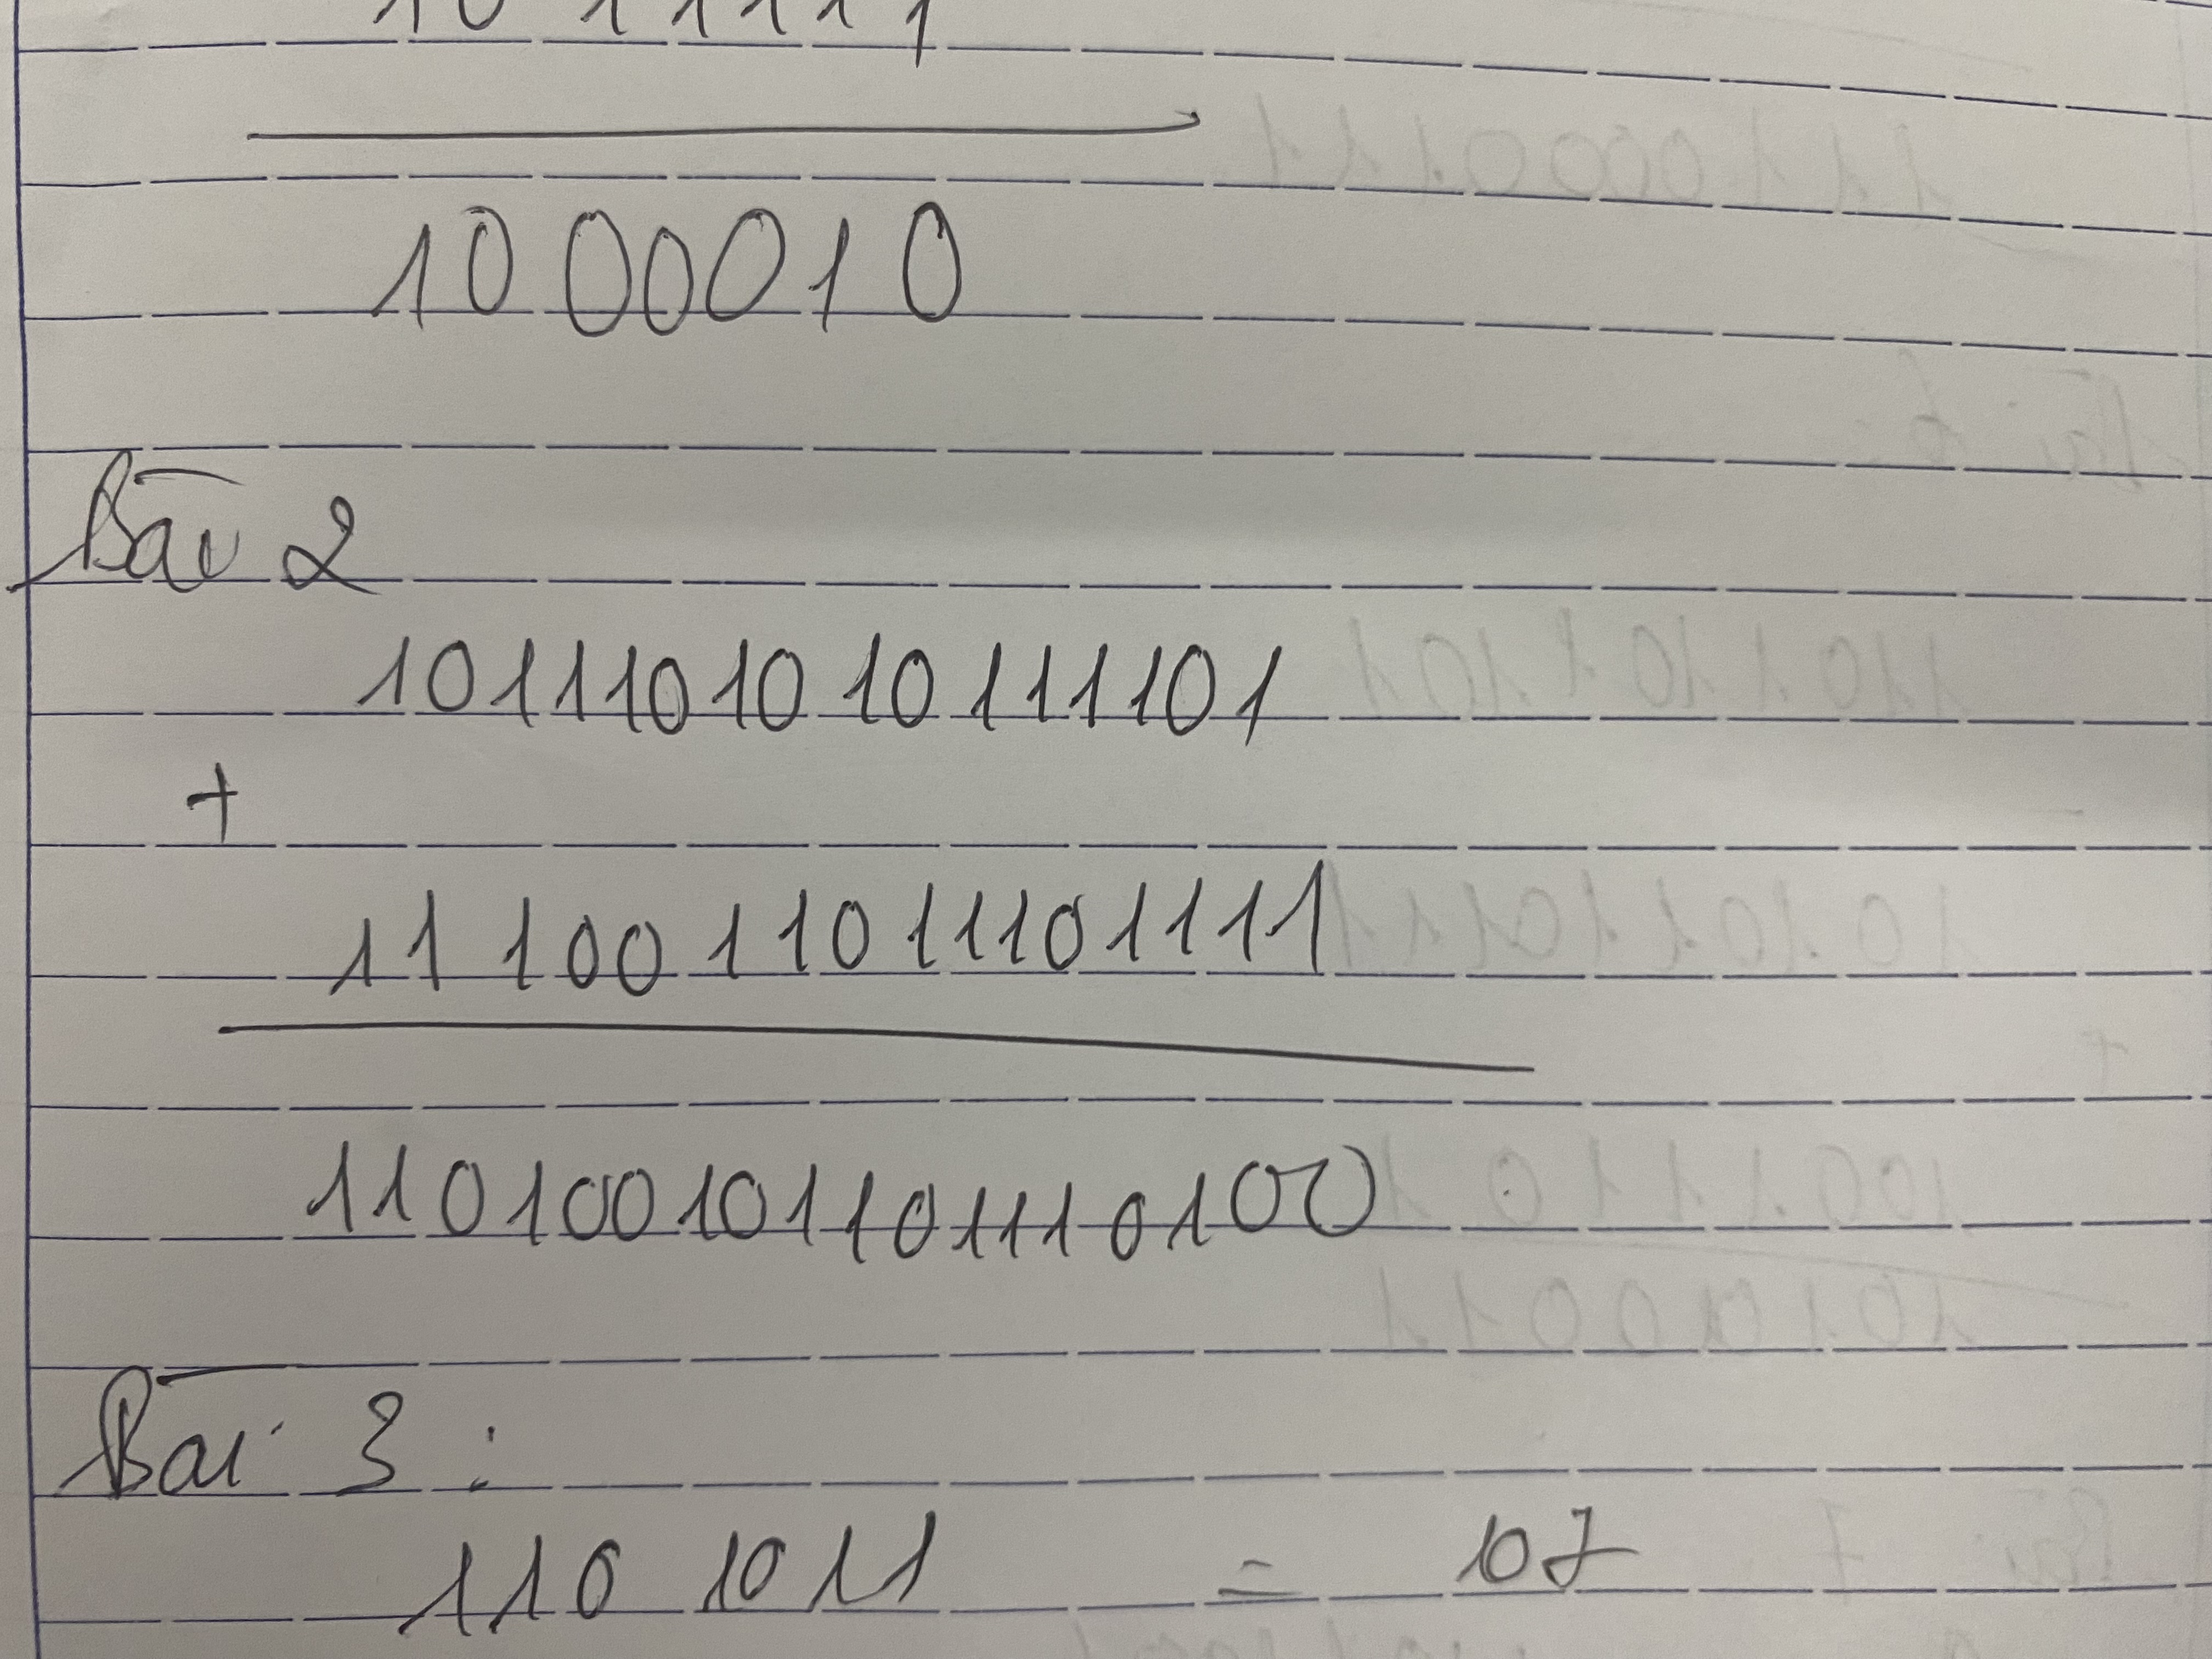 1000010
Bài 2
1011101010111101
+
1110011011101111
110100101101110100
Bài 3:
1101011 = 107